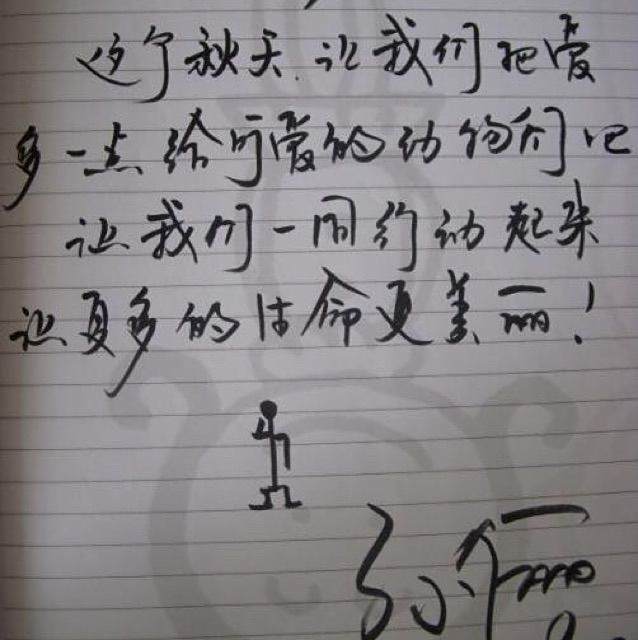 这个秋天,让我们把爱
多一点给可爱的动物们吧
让我们一同行动起来
让更多的生命更美丽!
孙俪